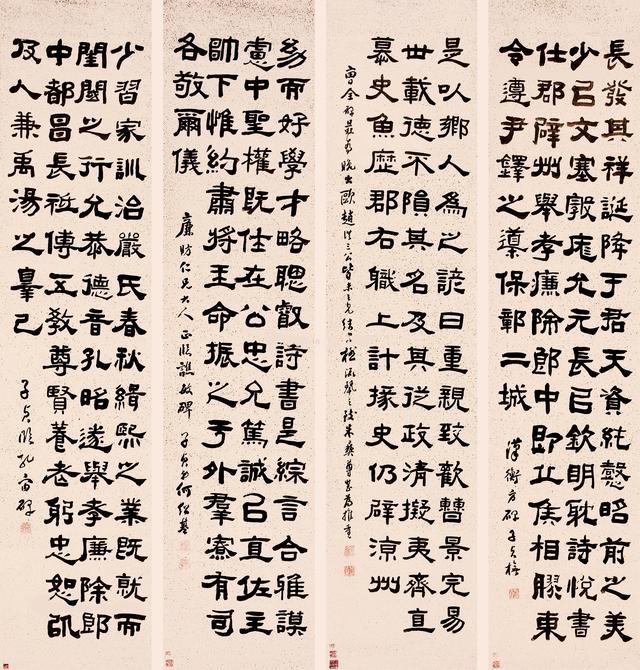 長發其祥誕降于君天資純懿昭前之美
少㠯文塞敦庬允元長㠯欽明耽詩悅書
仕郡辟州舉孝廉除郎中即丘侯相膠東
令遵尹鐸之導保鄣二城
漢衡方碑 子貞
是以鄉人為之諺曰重親致歡曹景完易
世載德不隕其名及其從政清擬夷齊直
慕史魚歷郡右職上計掾史仍辟涼州
曹全碑最後出歐趙洪三公皆未之見
幼而好學才略聰叡詩書是綜言合雅謨
慮中聖權既仕在公忠允篤誠㠯直佐主
帥下惟約肅將王命振之于外羣寮有司
各敬爾儀
廉舫仁兄大人正臨譙敏碑 子貞弟何紹基
少習家訓治嚴氏春秋緝熙之業既就而
閨閫之行允恭德音孔昭遂舉孝廉除郎
中都昌長祗傳五教尊賢養老躬忠恕㠯
及人兼禹湯之辠己
子貞臨孔宙碑